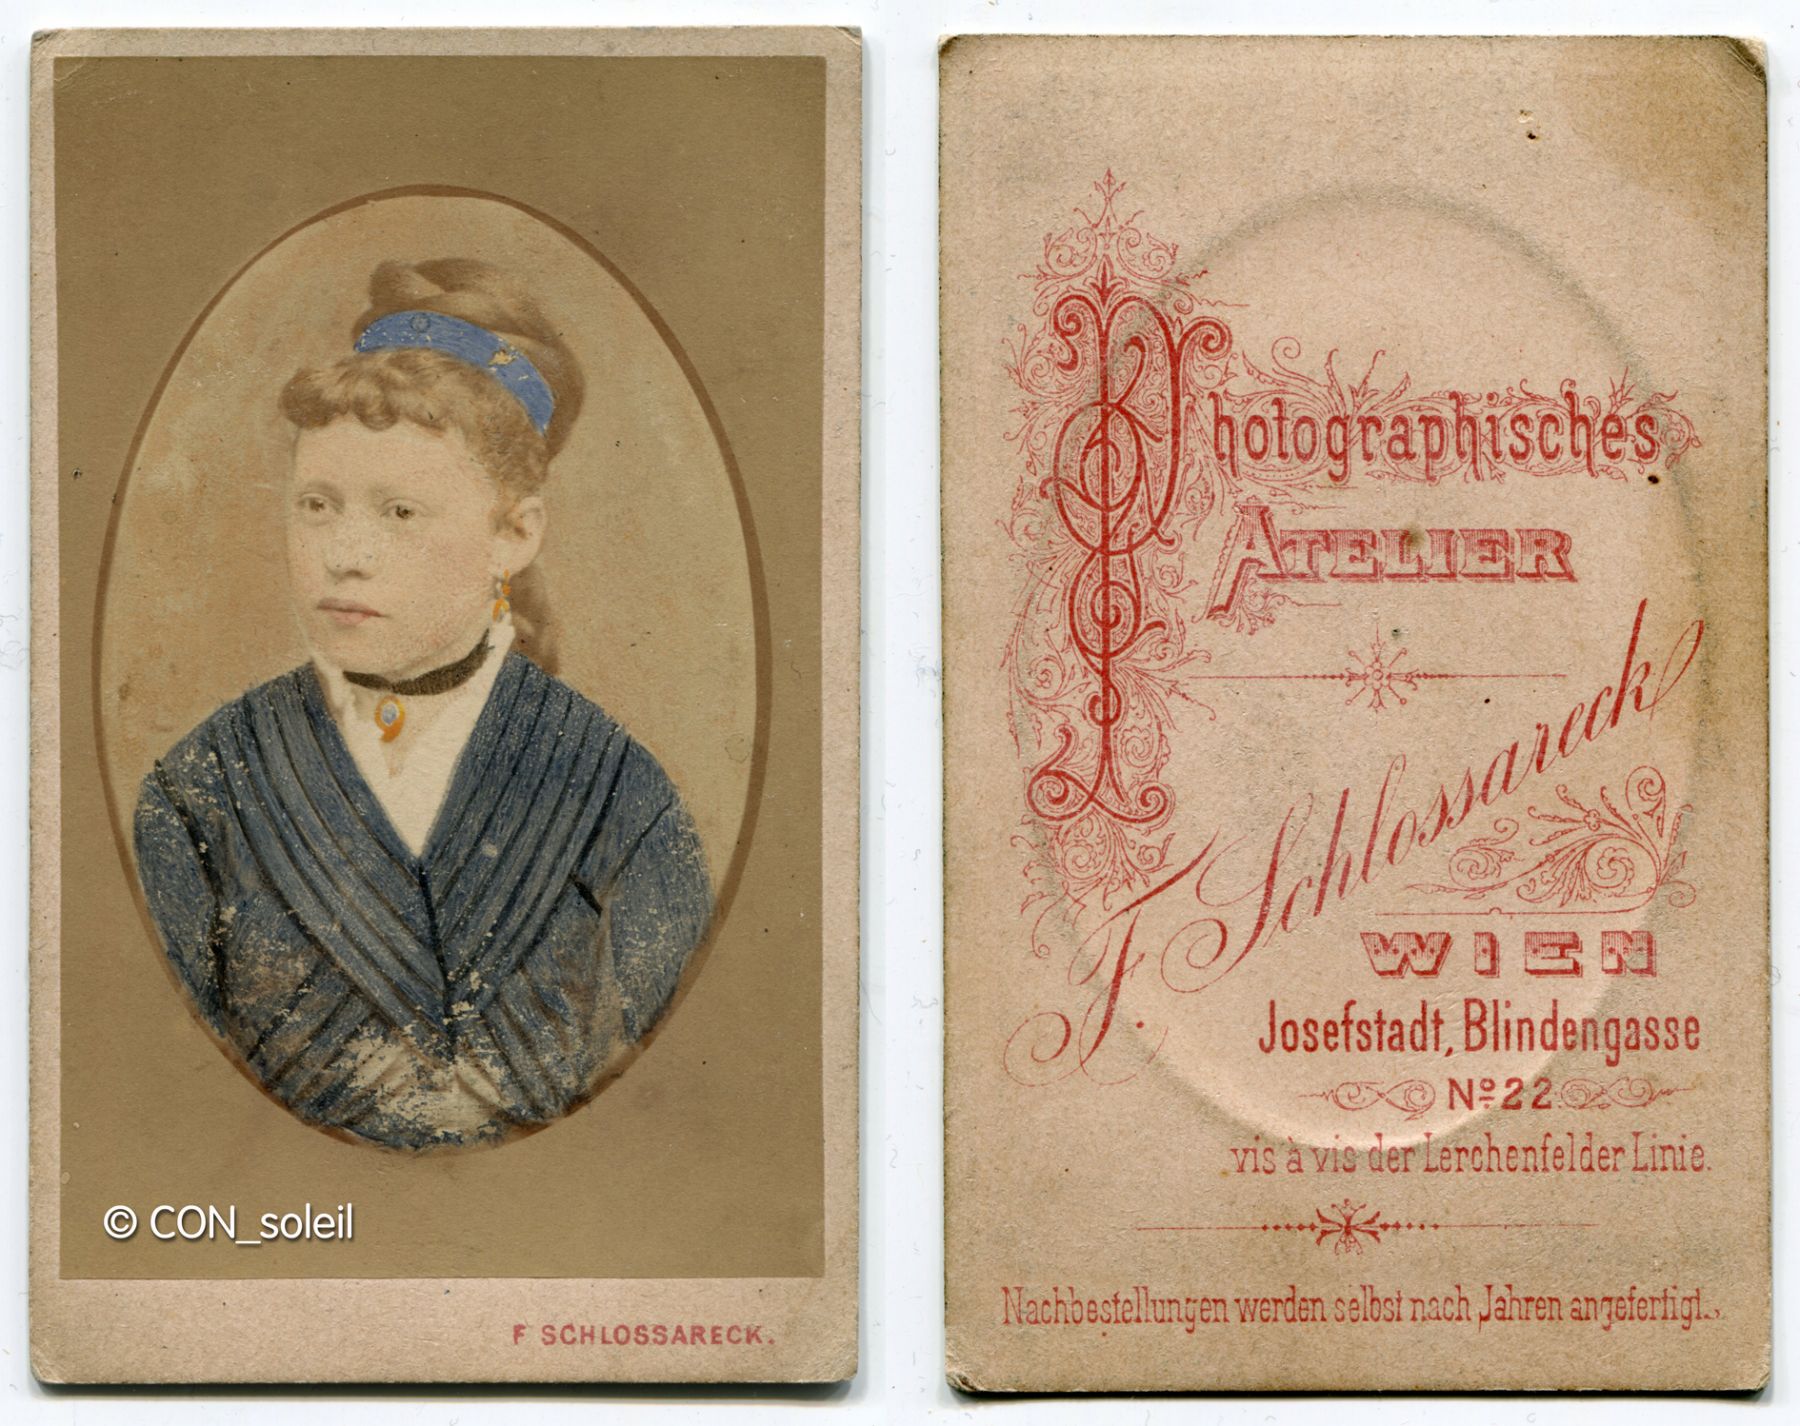 © CON_soleil
F SCHLOSSARECK.
Photographisches
ATELIER
F. Schlossareck
WIEN
Josefstadt, Blindengasse
No 22
vis à vis der Lerchenfelder Linie.
Nachbestellungen werden selbst nach Jahren angefertigt.